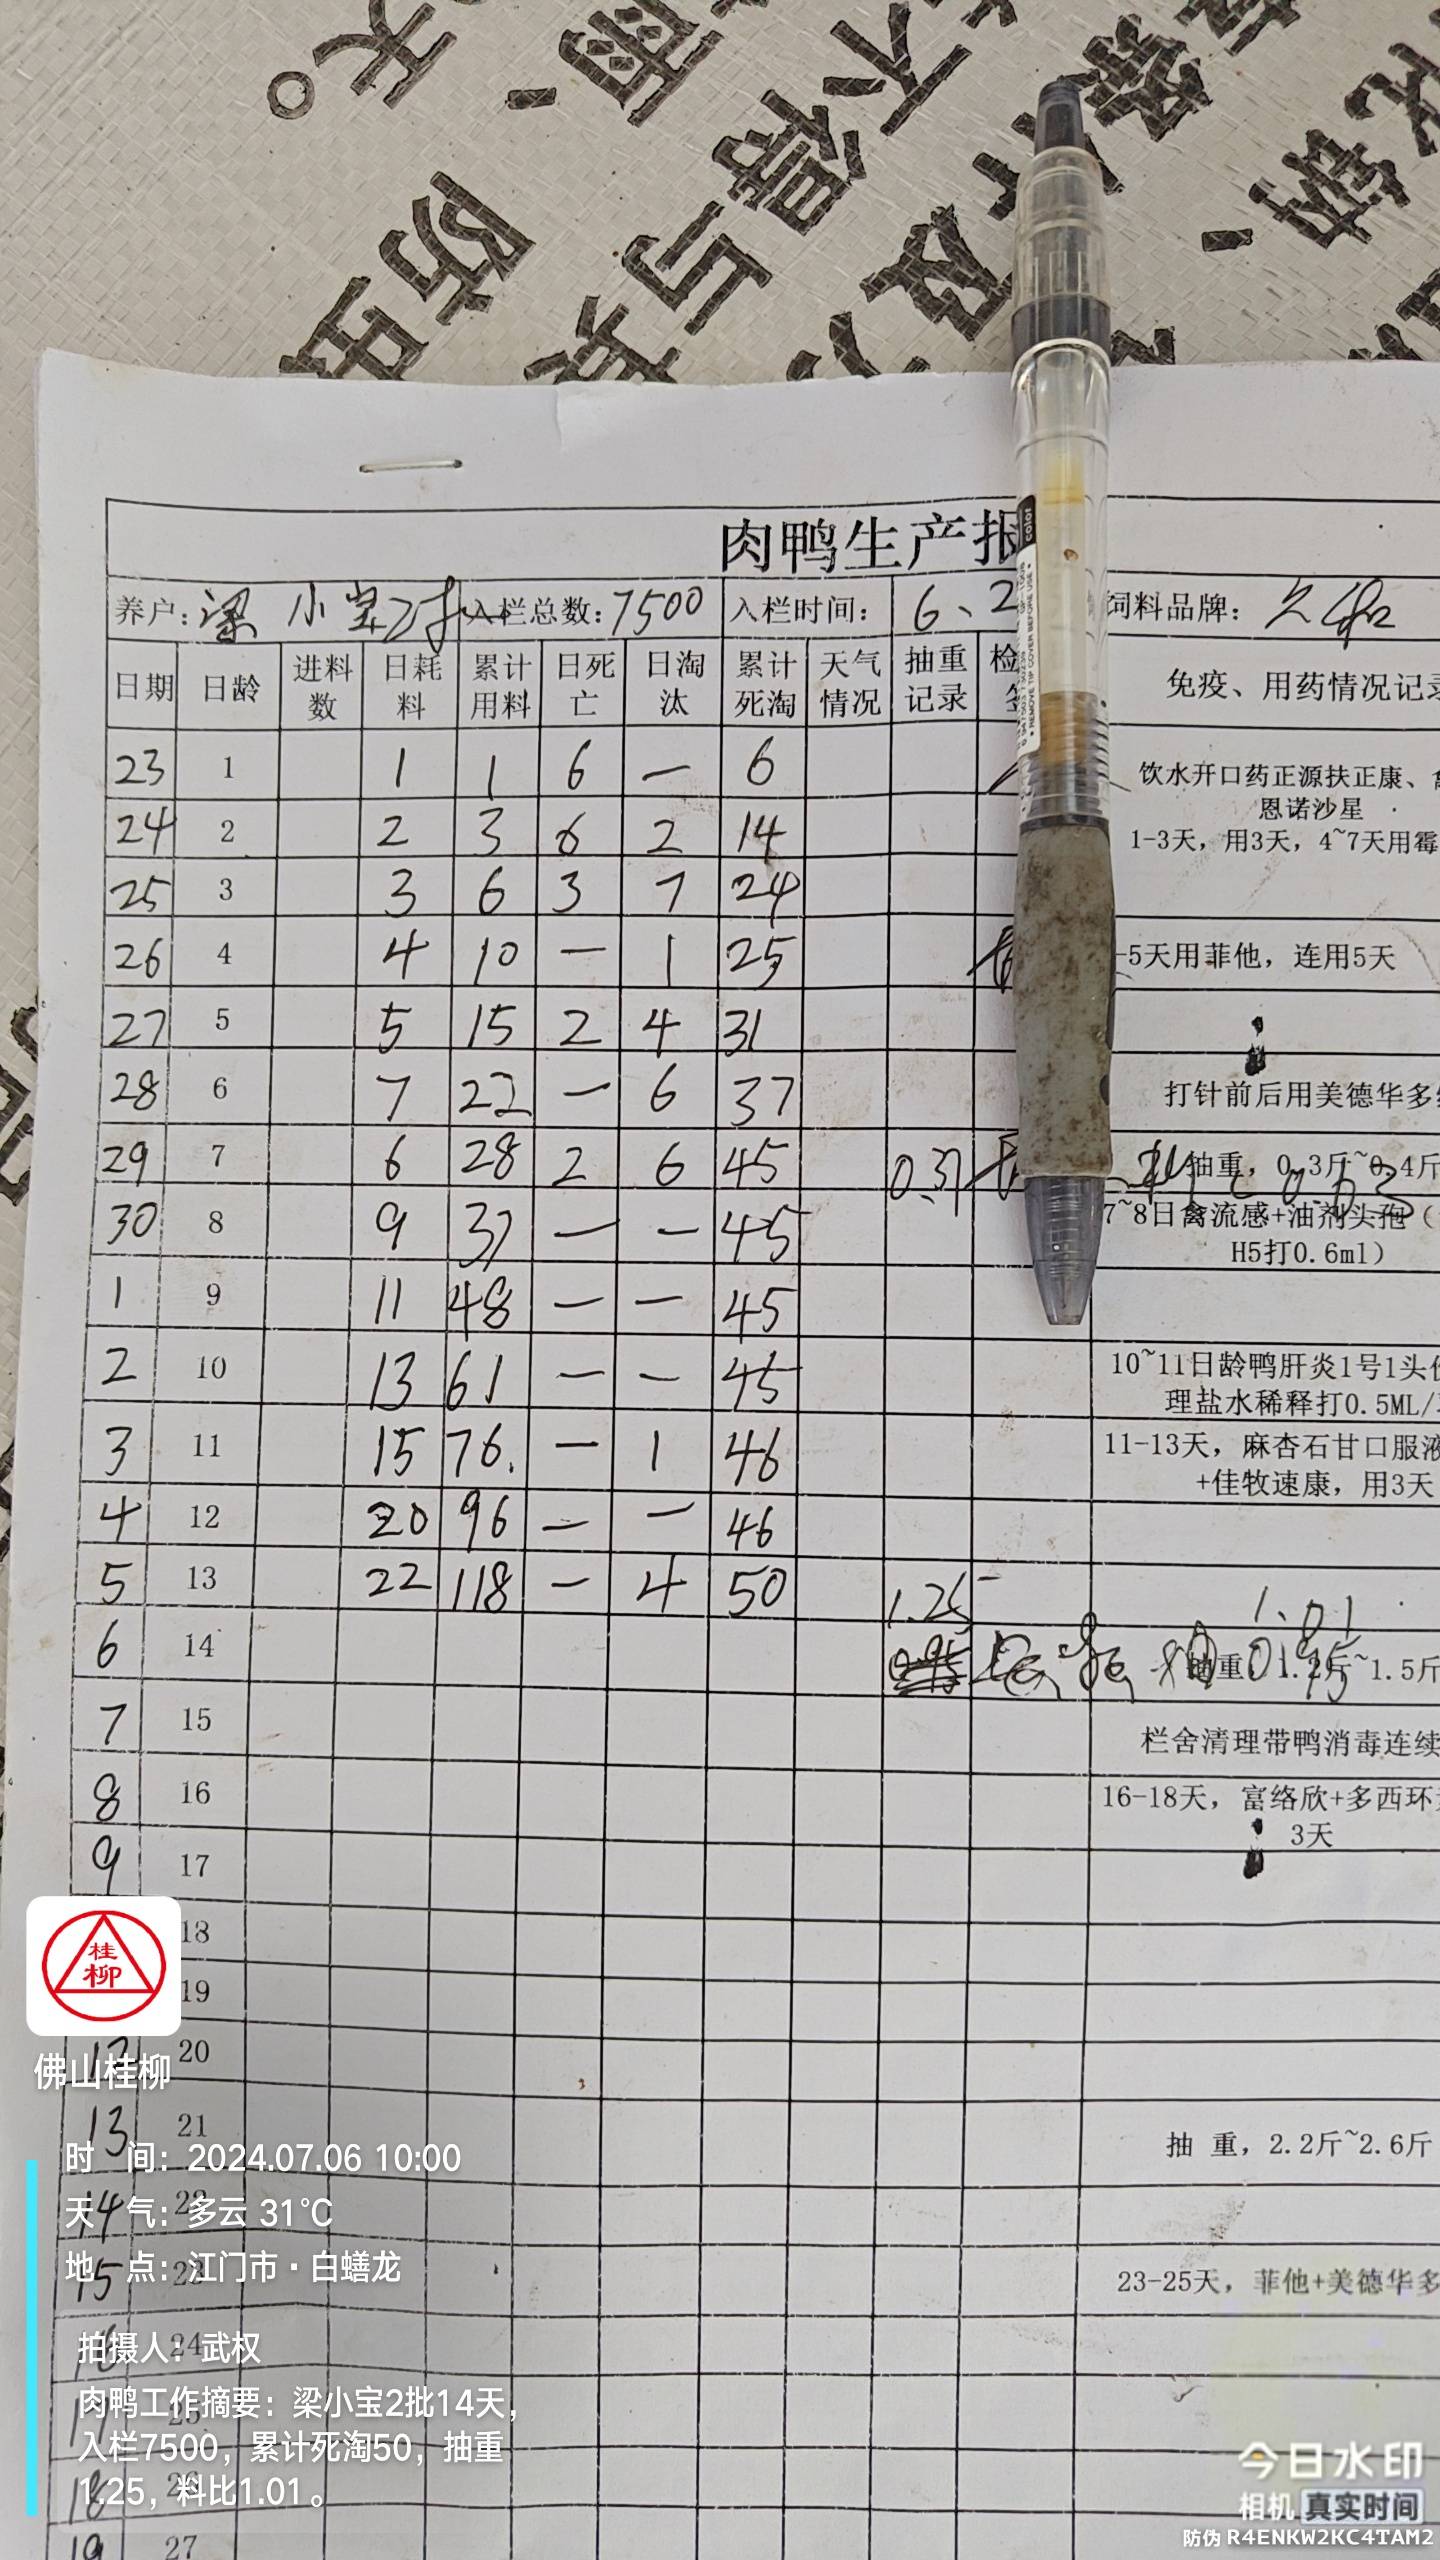 天。
雨、
不得
防
与
肉鸭生产报
养户：梁小宝2批 入栏总数：7500 入栏时间：6、2 饲料品牌：
日期 日龄 进料数 日耗料 累计用料 日死亡 日淘汰 累计死淘 天气情况 抽重记录 检 免疫、用药情况记录
23 1 1 1 6 — 6 饮水开口药正源扶正康、
恩诺沙星
24 2 2 3 6 2 14 1-3天，用3天，4~7天用霉
25 3 3 6 3 7 24
26 4 4 10 — 1 25 -5天用菲他，连用5天
27 5 5 15 2 4 31
28 6 7 22 — 6 37 打针前后用美德华多
29 7 6 28 2 6 45 0.37 抽重，0.3斤~0.4斤
30 8 9 37 — — 45 7~8日禽流感+油剂头孢（
H5打0.6ml）
1 9 11 48 — — 45
2 10 13 61 — — 45 10~11日龄鸭肝炎1号1头份
理盐水稀释打0.5ML/
3 11 15 76. — 1 46 11-13天，麻杏石甘口服液
+佳牧速康，用3天
4 12 20 96 — — 46
5 13 22 118 — 4 50 1.25 1.01
6 14 抽重，1.2斤~1.5斤
7 15 栏舍清理带鸭消毒连续
8 16 16-18天，富络欣+多西环
3天
9 17
18
19
12 20
13 21 抽 重，2.2斤~2.6斤
14 22
15 23 23-25天，菲他+美德华多
24
17 25
18 26
19 27
桂
柳
佛山桂柳
时 间：2024.07.06 10:00
天 气：多云 31℃
地 点：江门市·白蟮龙
拍摄人：武权
肉鸭工作摘要：梁小宝2批14天，
入栏7500，累计死淘50，抽重
1.25，料比1.01。
今日水印
相机 真实时间
防伪 R4ENKW2KC4TAM2